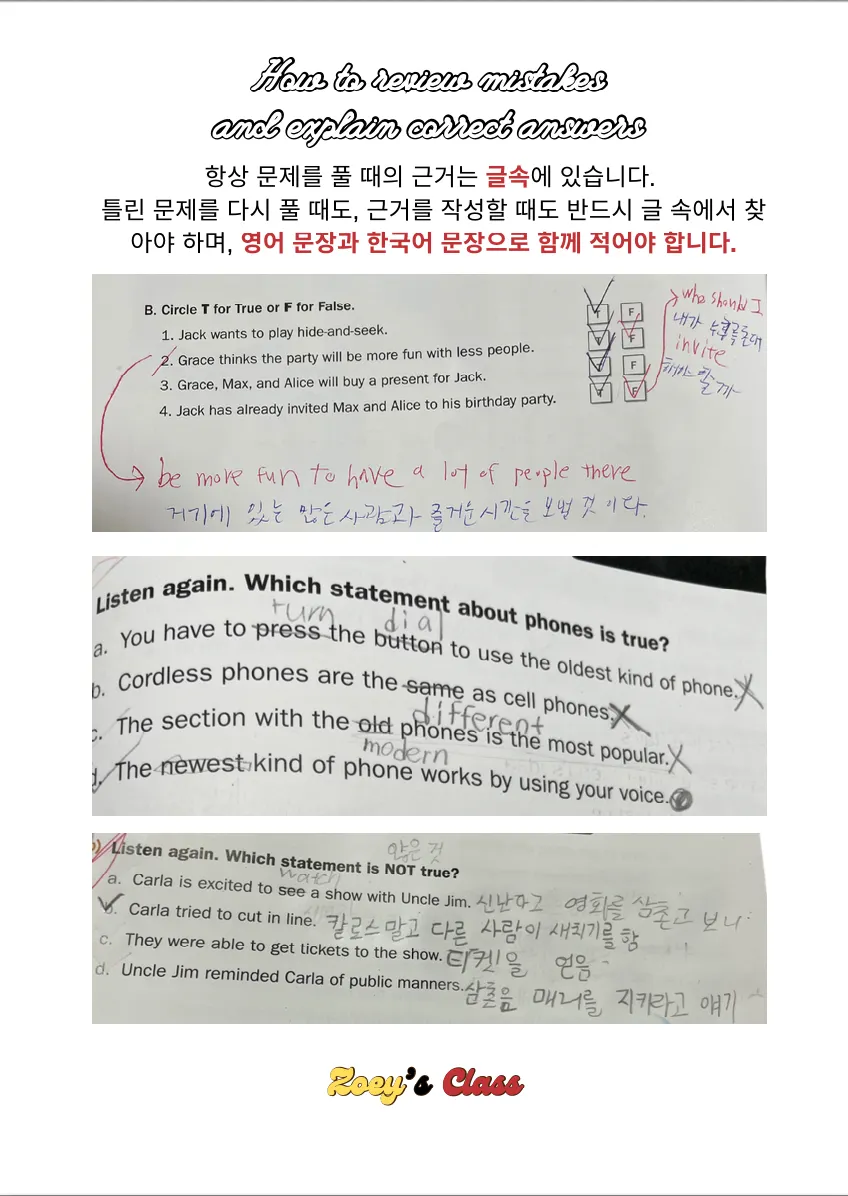 How to review mistakes
and explain correct answers
항상 문제를 풀 때의 근거는 글속에 있습니다.
틀린 문제를 다시 풀 때도, 근거를 작성할 때도 반드시 글 속에서 찾
아야 하며, 영어 문장과 한국어 문장으로 함께 적어야 합니다.
B. Circle T for True or F for False.
1. Jack wants to play hide-and-seek.
T F
2. Grace thinks the party will be more fun with less people.
T F
3. Grace, Max, and Alice will buy a present for Jack.
T F
4. Jack has already invited Max and Alice to his birthday party.
T F
who should I
내가
invite
할까
be more fun to have a lot of people there
거기에 있는 많은 사람과 즐거운 시간을 보낼 것 이다.
Listen again. Which statement about phones is true?
turn dial
a. You have to press the button to use the oldest kind of phone.
b. Cordless phones are the same as cell phones.
different
c. The section with the old phones is the most popular.
modern
d. The newest kind of phone works by using your voice.
않은 것
Listen again. Which statement is NOT true?
watch
a. Carla is excited to see a show with Uncle Jim. 영화를 삼촌고 보니
b. Carla tried to cut in line. 칼로스 말고 다른 사람이 새치기를 함
c. They were able to get tickets to the show. 티켓을 얻음
d. Uncle Jim reminded Carla of public manners. 삼촌음 매너를 지키라고 얘기
Zoey's Class